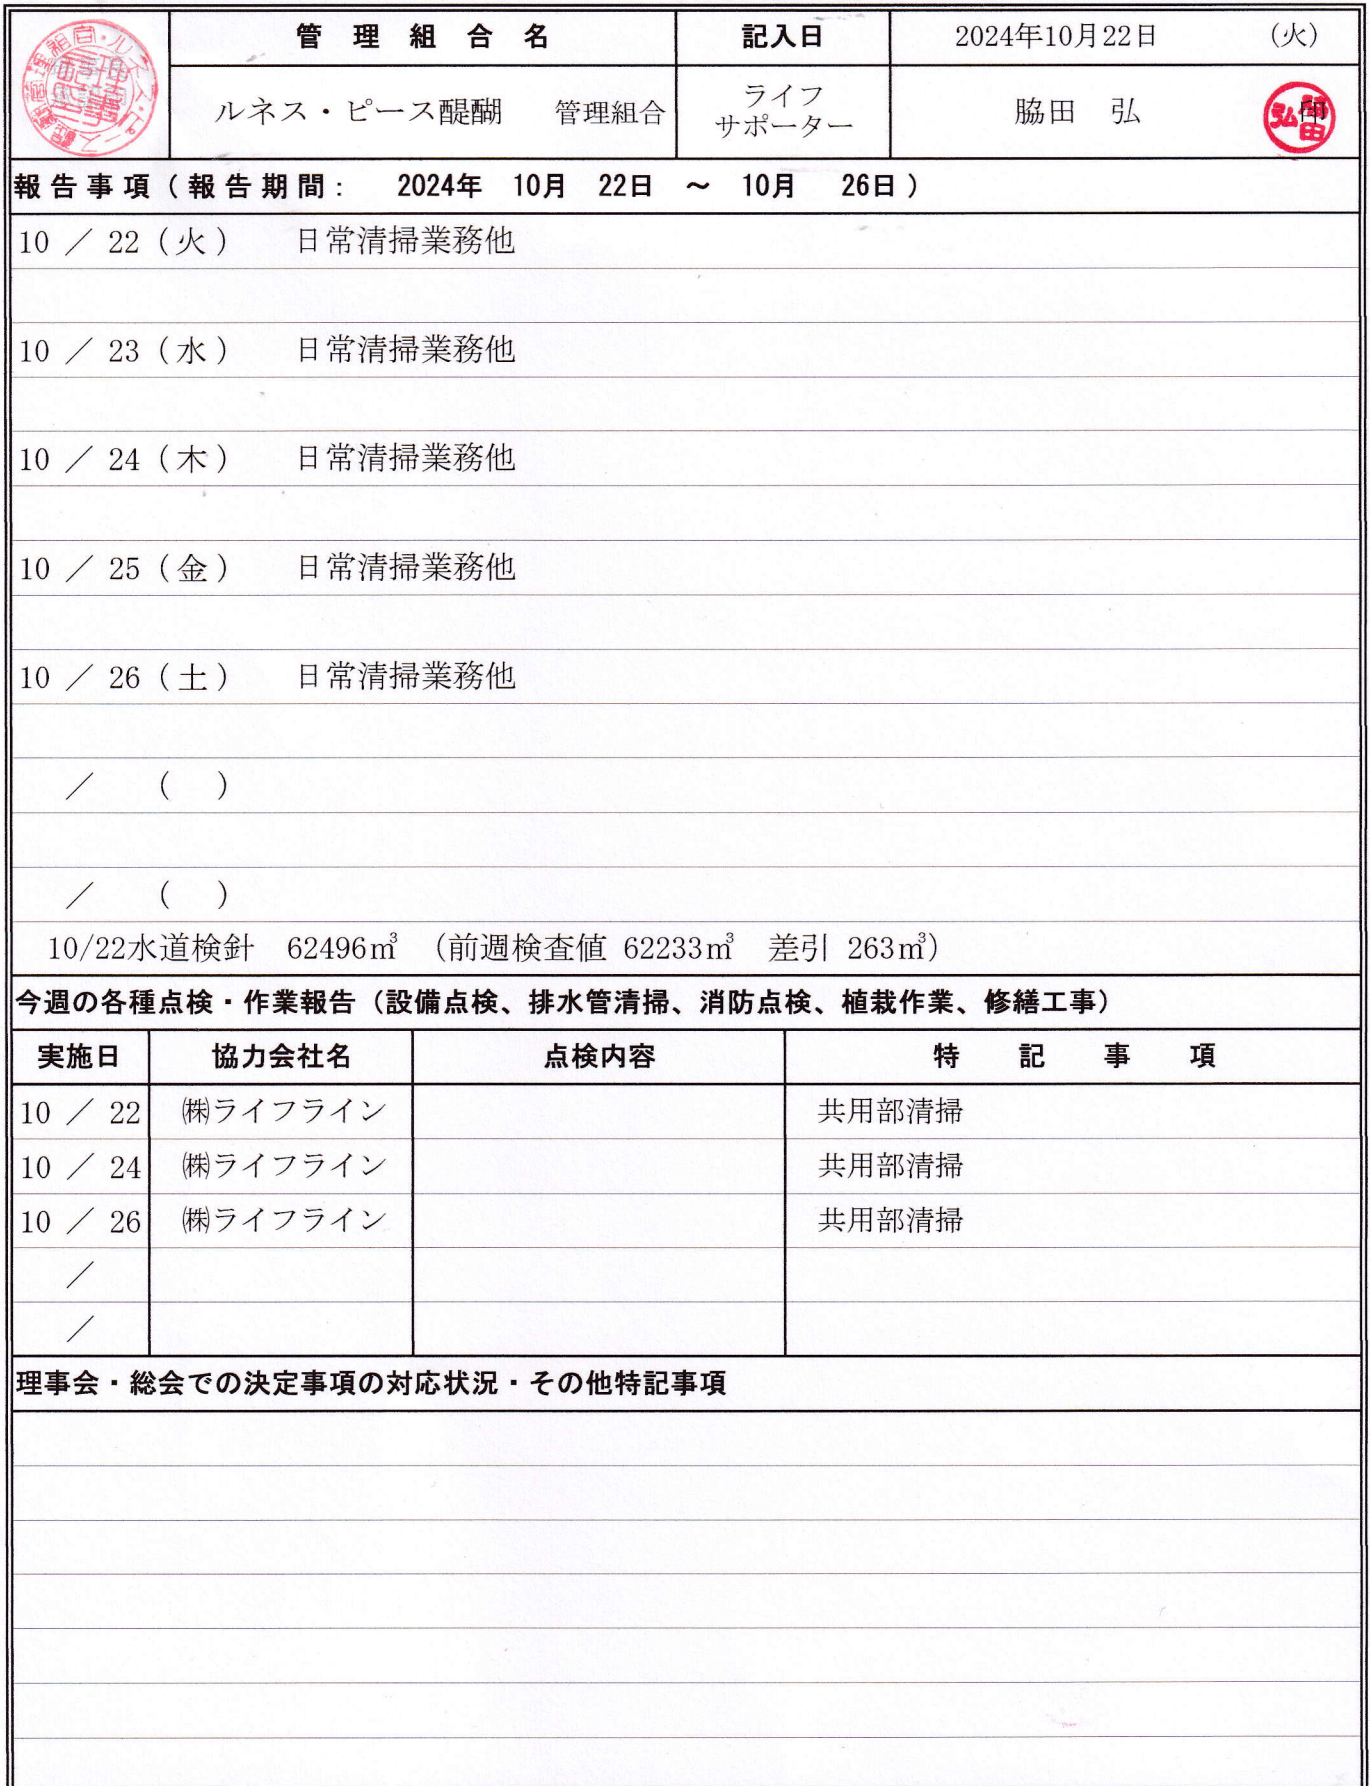 管理組合名 記入日 2024年10月22日 (火)
ルネス・ピース醍醐 管理組合 ライフ
サポーター 脇田 弘 印
報告事項(報告期間: 2024年 10月 22日 ~ 10月 26日)
10 / 22 (火) 日常清掃業務他
10 / 23 (水) 日常清掃業務他
10 / 24 (木) 日常清掃業務他
10 / 25 (金) 日常清掃業務他
10 / 26 (土) 日常清掃業務他
/ ( )
/ ( )
10/22水道検針 62496㎥ (前週検査値 62233㎥ 差引 263㎥)
今週の各種点検・作業報告(設備点検、排水管清掃、消防点検、植栽作業、修繕工事)
実施日 協力会社名 点検内容 特記事項
10 / 22 ㈱ライフライン 共用部清掃
10 / 24 ㈱ライフライン 共用部清掃
10 / 26 ㈱ライフライン 共用部清掃
/
/
理事会・総会での決定事項の対応状況・その他特記事項